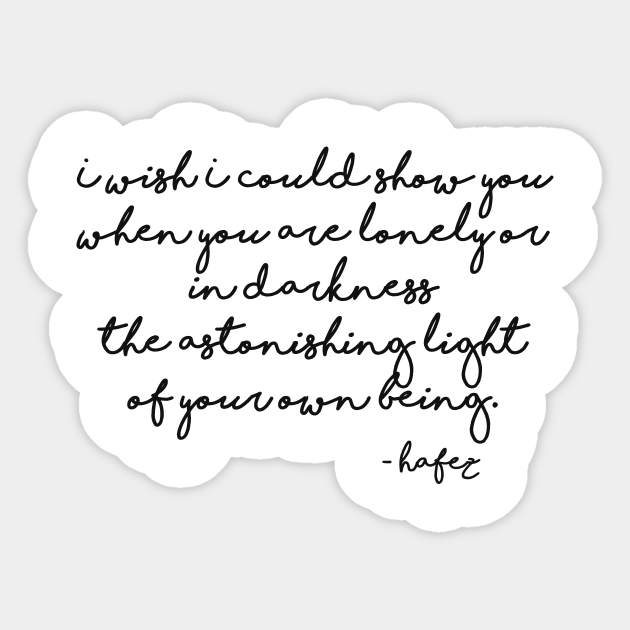 i wish i could show you
when you are lonely or
in darkness
the astonishing light
of your own being.
-hafez